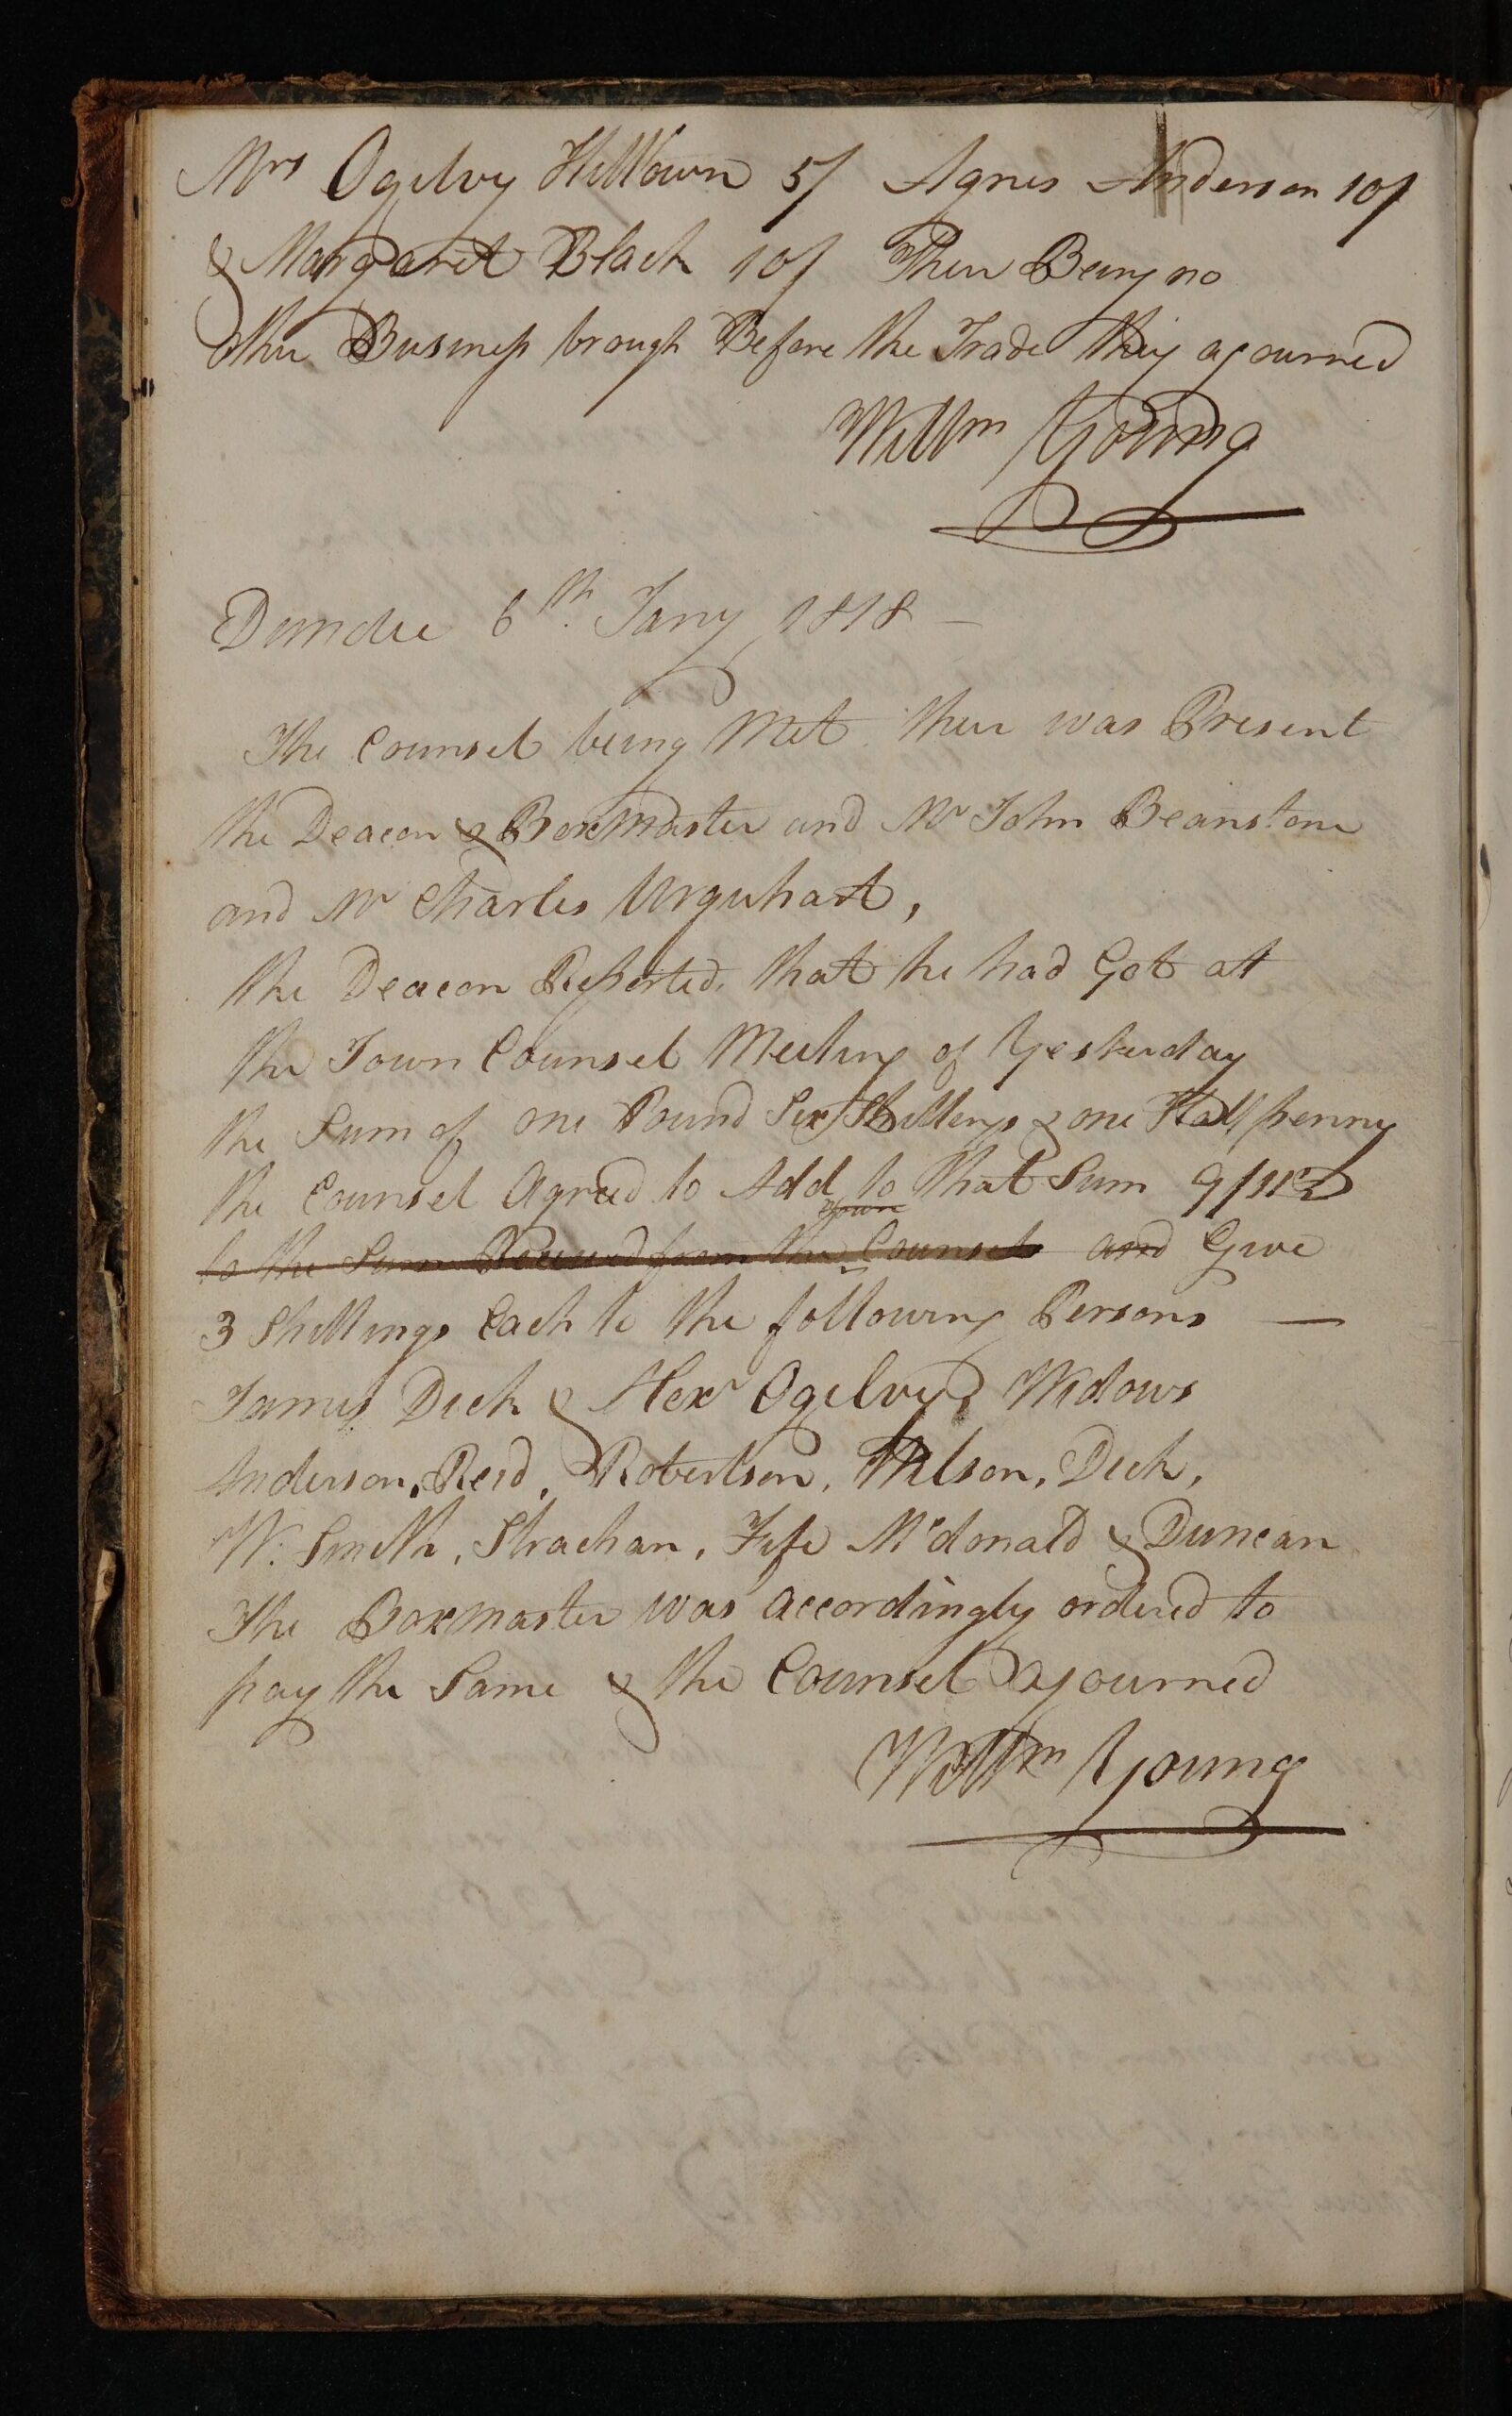 Mrs Ogilvy Hilltown 5/ Agnes Anderson 10/
& Margaret Black 10/ Ther Being no
other Business brough Before the Trade they ajourned
Willm Young
Dundee 6th. Jany 1818 —
The Counsel being Met ther was Present
the Deacon & Boxmaster and Mr John Beanstone
and Mr Charles Urquhart,
the Deacon Reported that he had Got at
the Town Counsel Meeting of Yesterday
the Sum of one Pound Six Shillings & one Half penny
the Counsel Agreed to Add to that Sum 9/11½
town
to the Sum Received from the Counsel and Give
3 Shillings Each to the following Persons —
James Dick & Alexr Ogilvy, Widows
Anderson, Reid, Robertson, Wilson, Dick,
W. Smith, Strachan, Fife Mcdonald & Duncan
The Boxmaster was accordingly ordered to
pay the Same & the Counsel ajourned
Willm Young